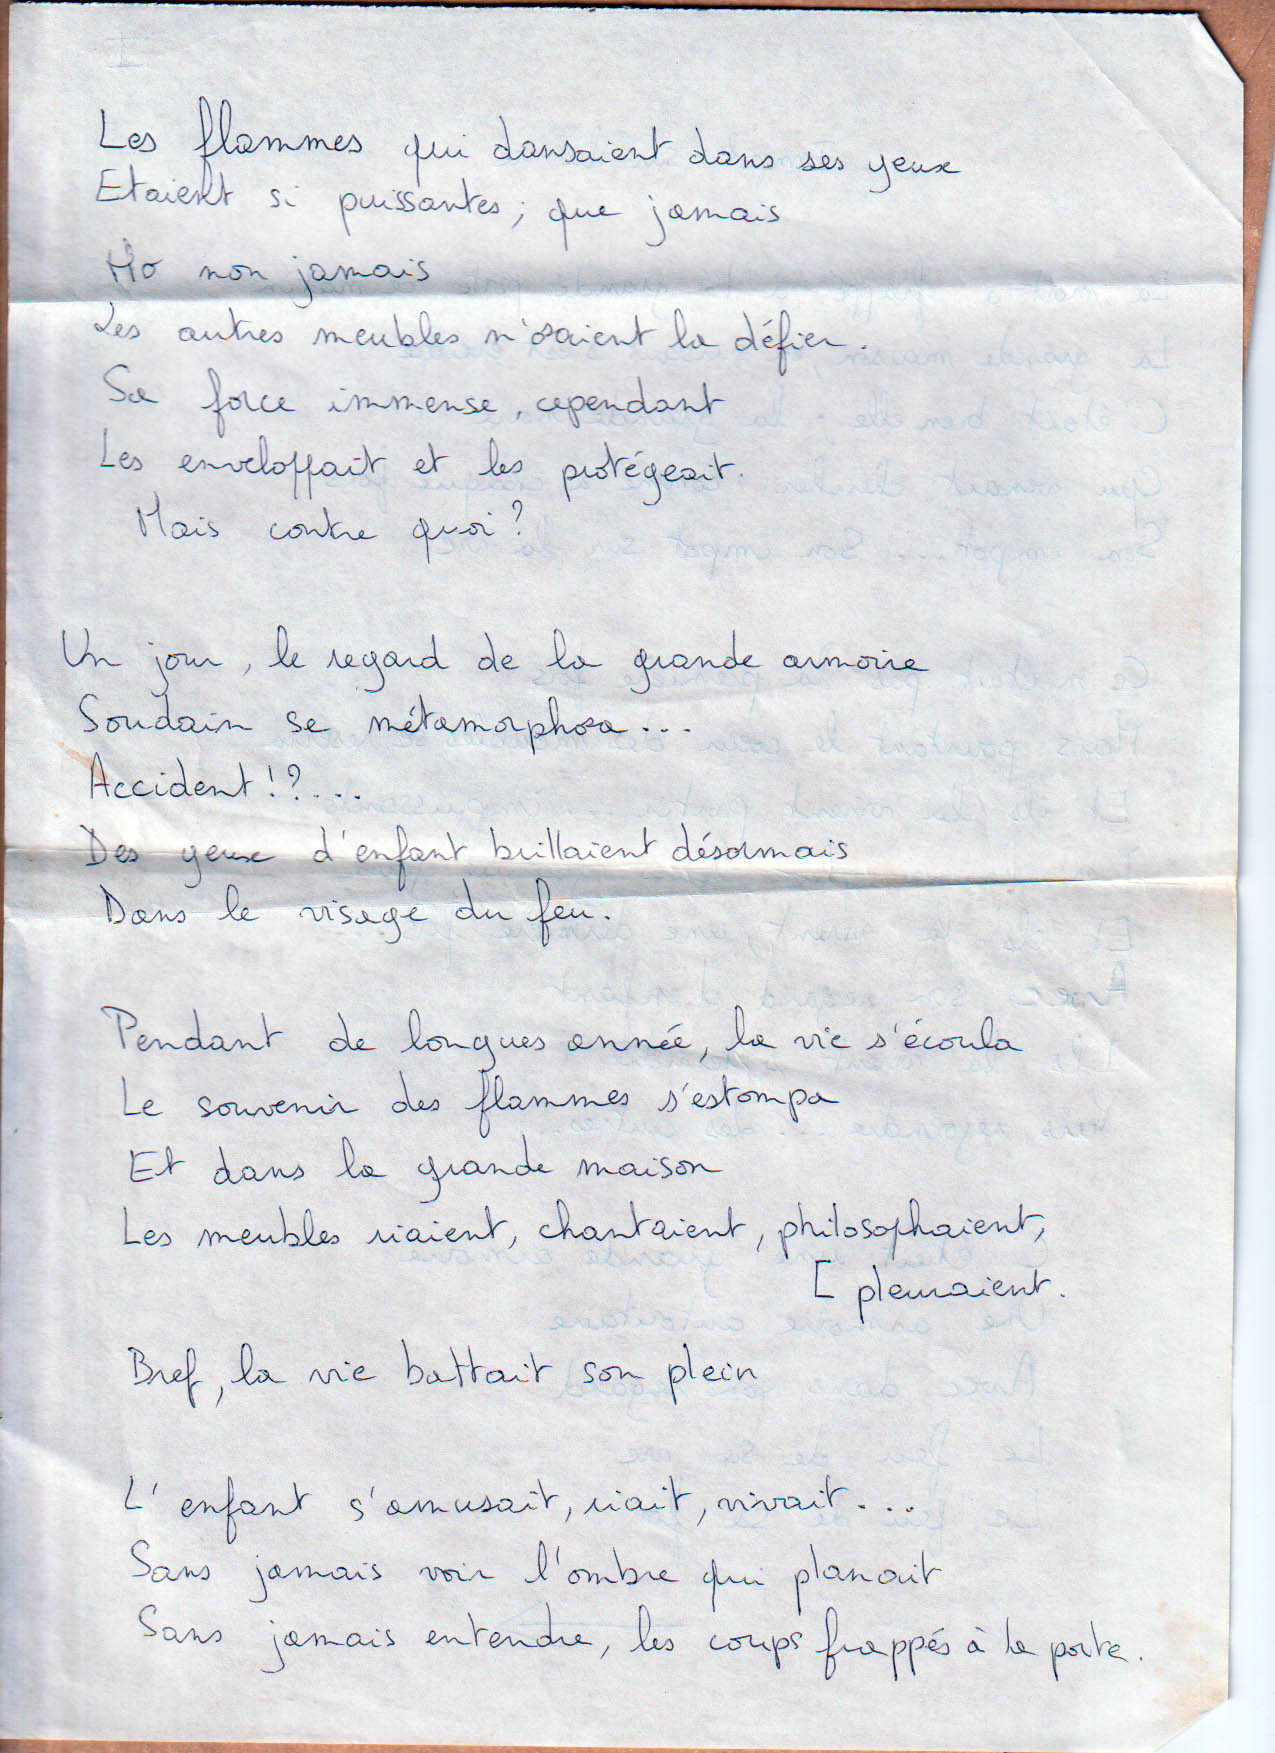 Les flammes qui dansaient dans ses yeux
Etaient si puissantes, que jamais
Ho non jamais
Les autres meubles n'osaient la défier.
Sa force immense, cependant
Les enveloppait et les protégeait.
Mais contre quoi ?
Un jour, le regard de la grande armoire
Soudain se métamorphosa...
Accident !?....
Des yeux d'enfant brillaient désormais
Dans le visage du feu.
Pendant de longues année, la vie s'écoula
Le souvenir des flammes s'estompa
Et dans la grande maison
Les meubles riaient, chantaient, philosophaient,
[ pleuraient.
Bref, la vie battait son plein
L'enfant s'amusait, riait, vivait...
Sans jamais voir l'ombre qui planait
Sans jamais entendre, les coups frappés à la porte.